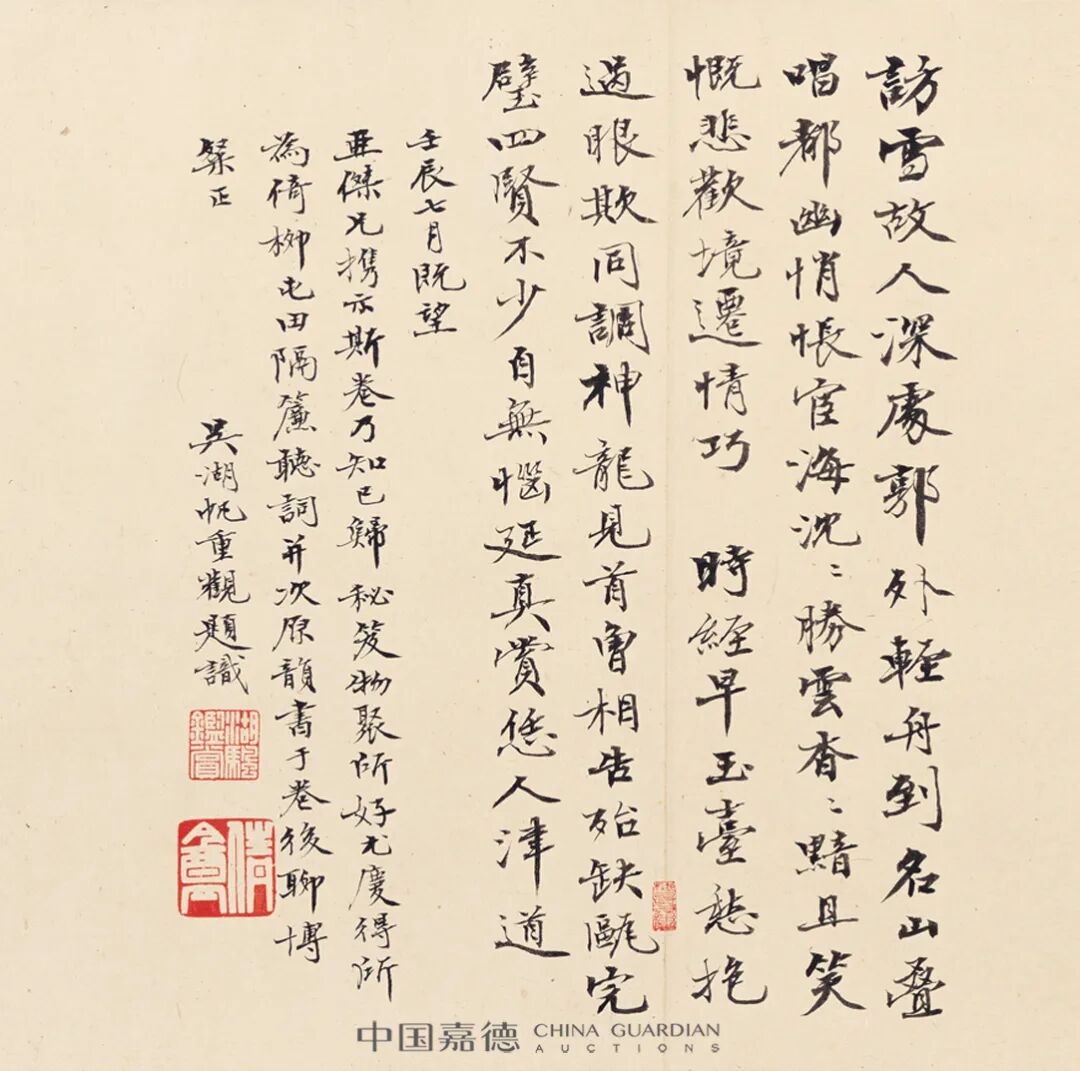 訪雪故人深處郭外輕舟到名山疊
唱都幽悄悵宦海沈〻勝雲杳〻黯且笑
慨悲歡境遷情巧 時經早玉臺愁抱
過眼欣同調神龍見首曾相告殆缺甌完
璧四賢不少自無惱延真賞恁人津道
壬辰七月既望
亞傑兄攜示斯卷乃知已歸秘笈物聚所好尤慶得所
為倚柳屯田隔簾聽詞并次原韻書于卷後聊博
粲正 吳湖帆重觀題識
湖颿鑑賞
倩盦
中国嘉德 CHINA GUARDIAN
AUCTIONS